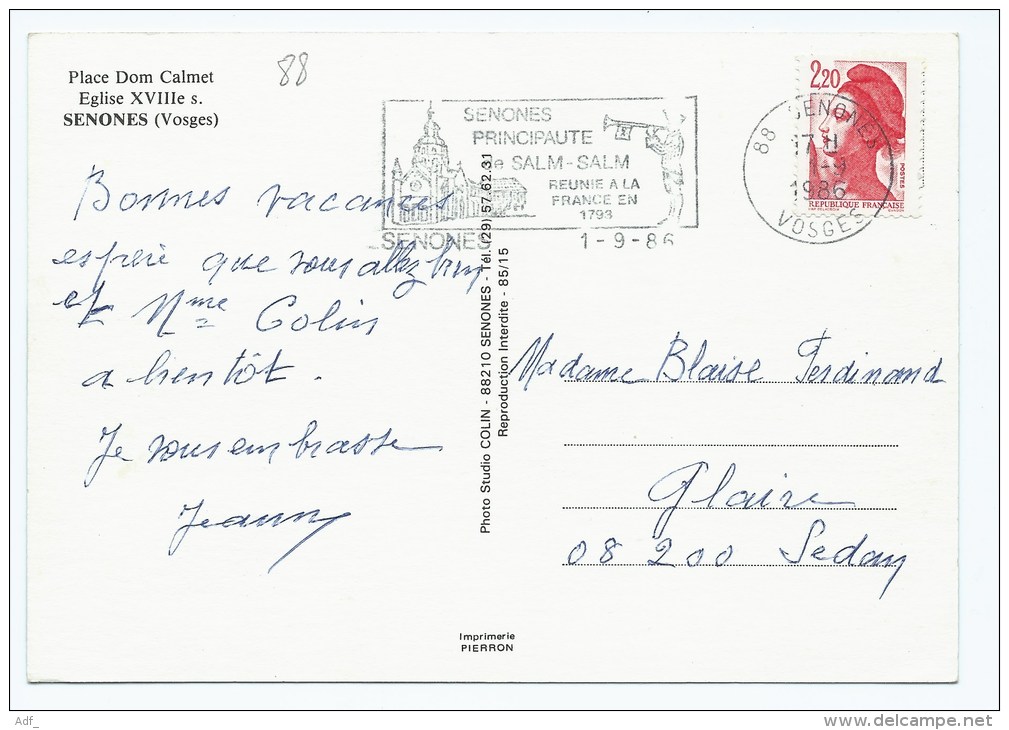 88
Place Dom Calmet
Eglise XVIIIe s.
SENONES (Vosges)
SENONES
PRINCIPAUTE
de SALM-SALM
REUNIE À LA
FRANCE EN
1793
SENONES
1-9-86
88 SENONES
17 H
1-9
1986
VOSGES
2,20
POSTES
REPUBLIQUE FRANÇAISE
Bonnes vacances
espère que vous allez bien
et Mme Colin
a bientôt.
Je vous embrasse
Jeanny
Photo Studio COLIN - 88210 SENONES - Tél. (29) 57.62.31
Reproduction Interdite - 85/15
Madame Blaise Ferdinand
Glaire
08 200 Sedan
Imprimerie
PIERRON
Adf_
www.delcampe.net